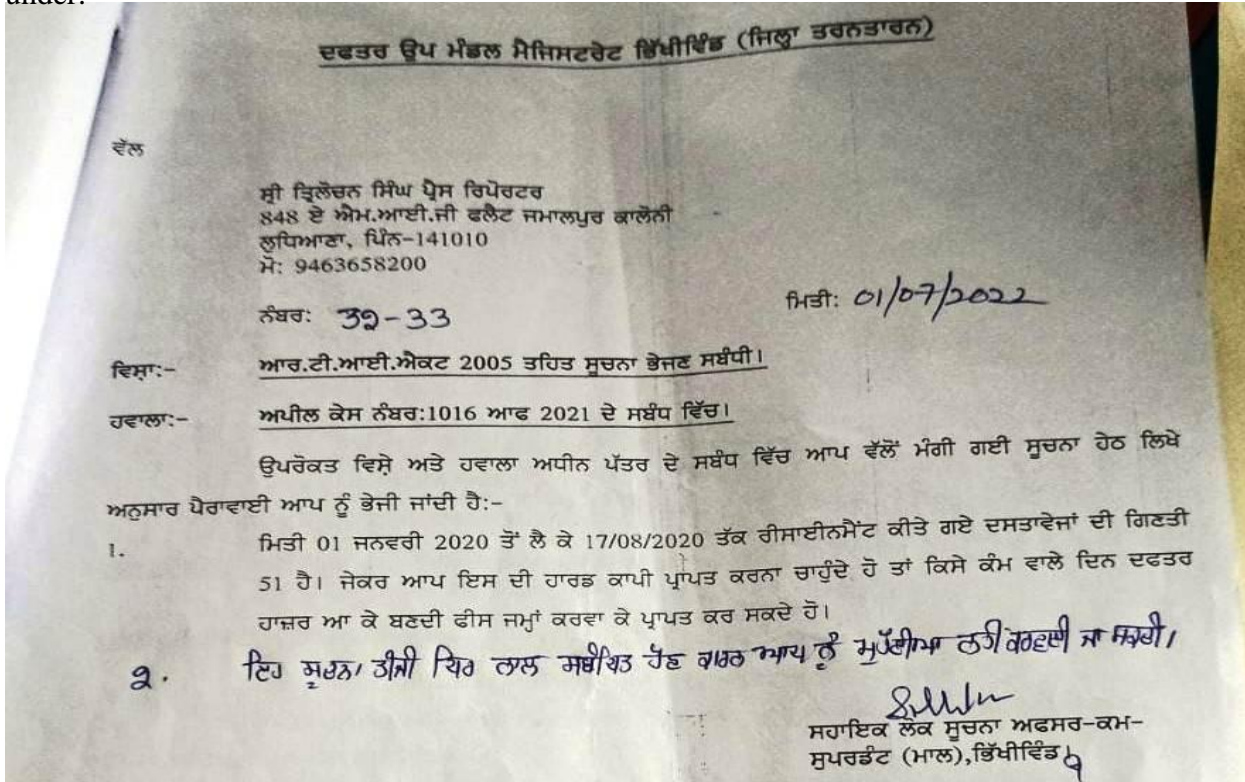 under:
ਦਫਤਰ ਉਪ ਮੰਡਲ ਮੈਜਿਸਟਰੇਟ ਭਿੱਖੀਵਿੰਡ (ਜਿਲ੍ਹਾ ਤਰਨਤਾਰਨ)
ਵੱਲ
ਸ਼੍ਰੀ ਤ੍ਰਿਲੋਚਨ ਸਿੰਘ ਪ੍ਰੈਸ ਰਿਪੋਰਟਰ
848 ਏ ਐਮ.ਆਈ.ਜੀ ਫਲੈਟ ਜਮਾਲਪੁਰ ਕਾਲੋਨੀ
ਲੁਧਿਆਣਾ, ਪਿੰਨ-141010
ਮੋ: 9463658200
ਨੰਬਰ: 32-33 ਮਿਤੀ: 01/07/2022
ਵਿਸ਼ਾ:- ਆਰ.ਟੀ.ਆਈ.ਐਕਟ 2005 ਤਹਿਤ ਸੂਚਨਾ ਭੇਜਣ ਸਬੰਧੀ।
ਹਵਾਲਾ:- ਅਪੀਲ ਕੇਸ ਨੰਬਰ:1016 ਆਫ 2021 ਦੇ ਸਬੰਧ ਵਿੱਚ।
ਉਪਰੋਕਤ ਵਿਸ਼ੇ ਅਤੇ ਹਵਾਲਾ ਅਧੀਨ ਪੱਤਰ ਦੇ ਸਬੰਧ ਵਿੱਚ ਆਪ ਵੱਲੋਂ ਮੰਗੀ ਗਈ ਸੂਚਨਾ ਹੇਠ ਲਿਖੇ
ਅਨੁਸਾਰ ਪੈਰਾਵਾਈ ਆਪ ਨੂੰ ਭੇਜੀ ਜਾਂਦੀ ਹੈ:-
1. ਮਿਤੀ 01 ਜਨਵਰੀ 2020 ਤੋਂ ਲੈ ਕੇ 17/08/2020 ਤੱਕ ਰੀਸਾਈਨਮੈਂਟ ਕੀਤੇ ਗਏ ਦਸਤਾਵੇਜਾਂ ਦੀ ਗਿਣਤੀ
51 ਹੈ। ਜੇਕਰ ਆਪ ਇਸ ਦੀ ਹਾਰਡ ਕਾਪੀ ਪ੍ਰਾਪਤ ਕਰਨਾ ਚਾਹੁੰਦੇ ਹੋ ਤਾਂ ਕਿਸੇ ਕੰਮ ਵਾਲੇ ਦਿਨ ਦਫਤਰ
ਹਾਜ਼ਰ ਆ ਕੇ ਬਣਦੀ ਫੀਸ ਜਮ੍ਹਾਂ ਕਰਵਾ ਕੇ ਪ੍ਰਾਪਤ ਕਰ ਸਕਦੇ ਹੋ।
2. ਇਹ ਸੂਚਨਾ ਤੀਜੀ ਧਿਰ ਨਾਲ ਸਬੰਧਿਤ ਹੋਣ ਕਾਰਨ ਆਪ ਨੂੰ ਮੁਹੱਈਆ ਨਹੀਂ ਕਰਵਾਈ ਜਾ ਸਕਦੀ।
ਸਹਾਇਕ ਲੋਕ ਸੂਚਨਾ ਅਫਸਰ-ਕਮ-
ਸੁਪਰਡੰਟ (ਮਾਲ),ਭਿੱਖੀਵਿੰਡ।